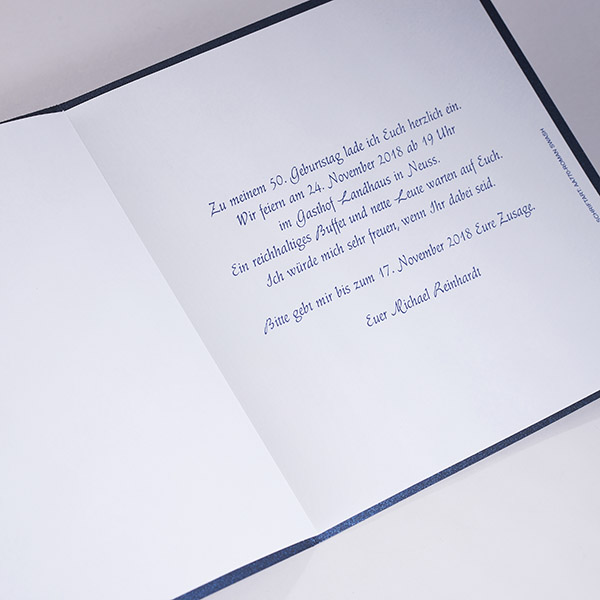 Zu meinem 50. Geburtstag lade ich Euch herzlich ein.
Wir feiern am 24. November 2018 ab 19 Uhr
im Gasthof Landhaus in Neuss.
Ein reichhaltiges Buffet und nette Leute warten auf Euch.
Ich würde mich sehr freuen, wenn Ihr dabei seid.
Bitte gebt mir bis zum 17. November 2018 Eure Zusage.
Euer Michael Reinhardt
SCHRIFTART: ROMAN SWASH